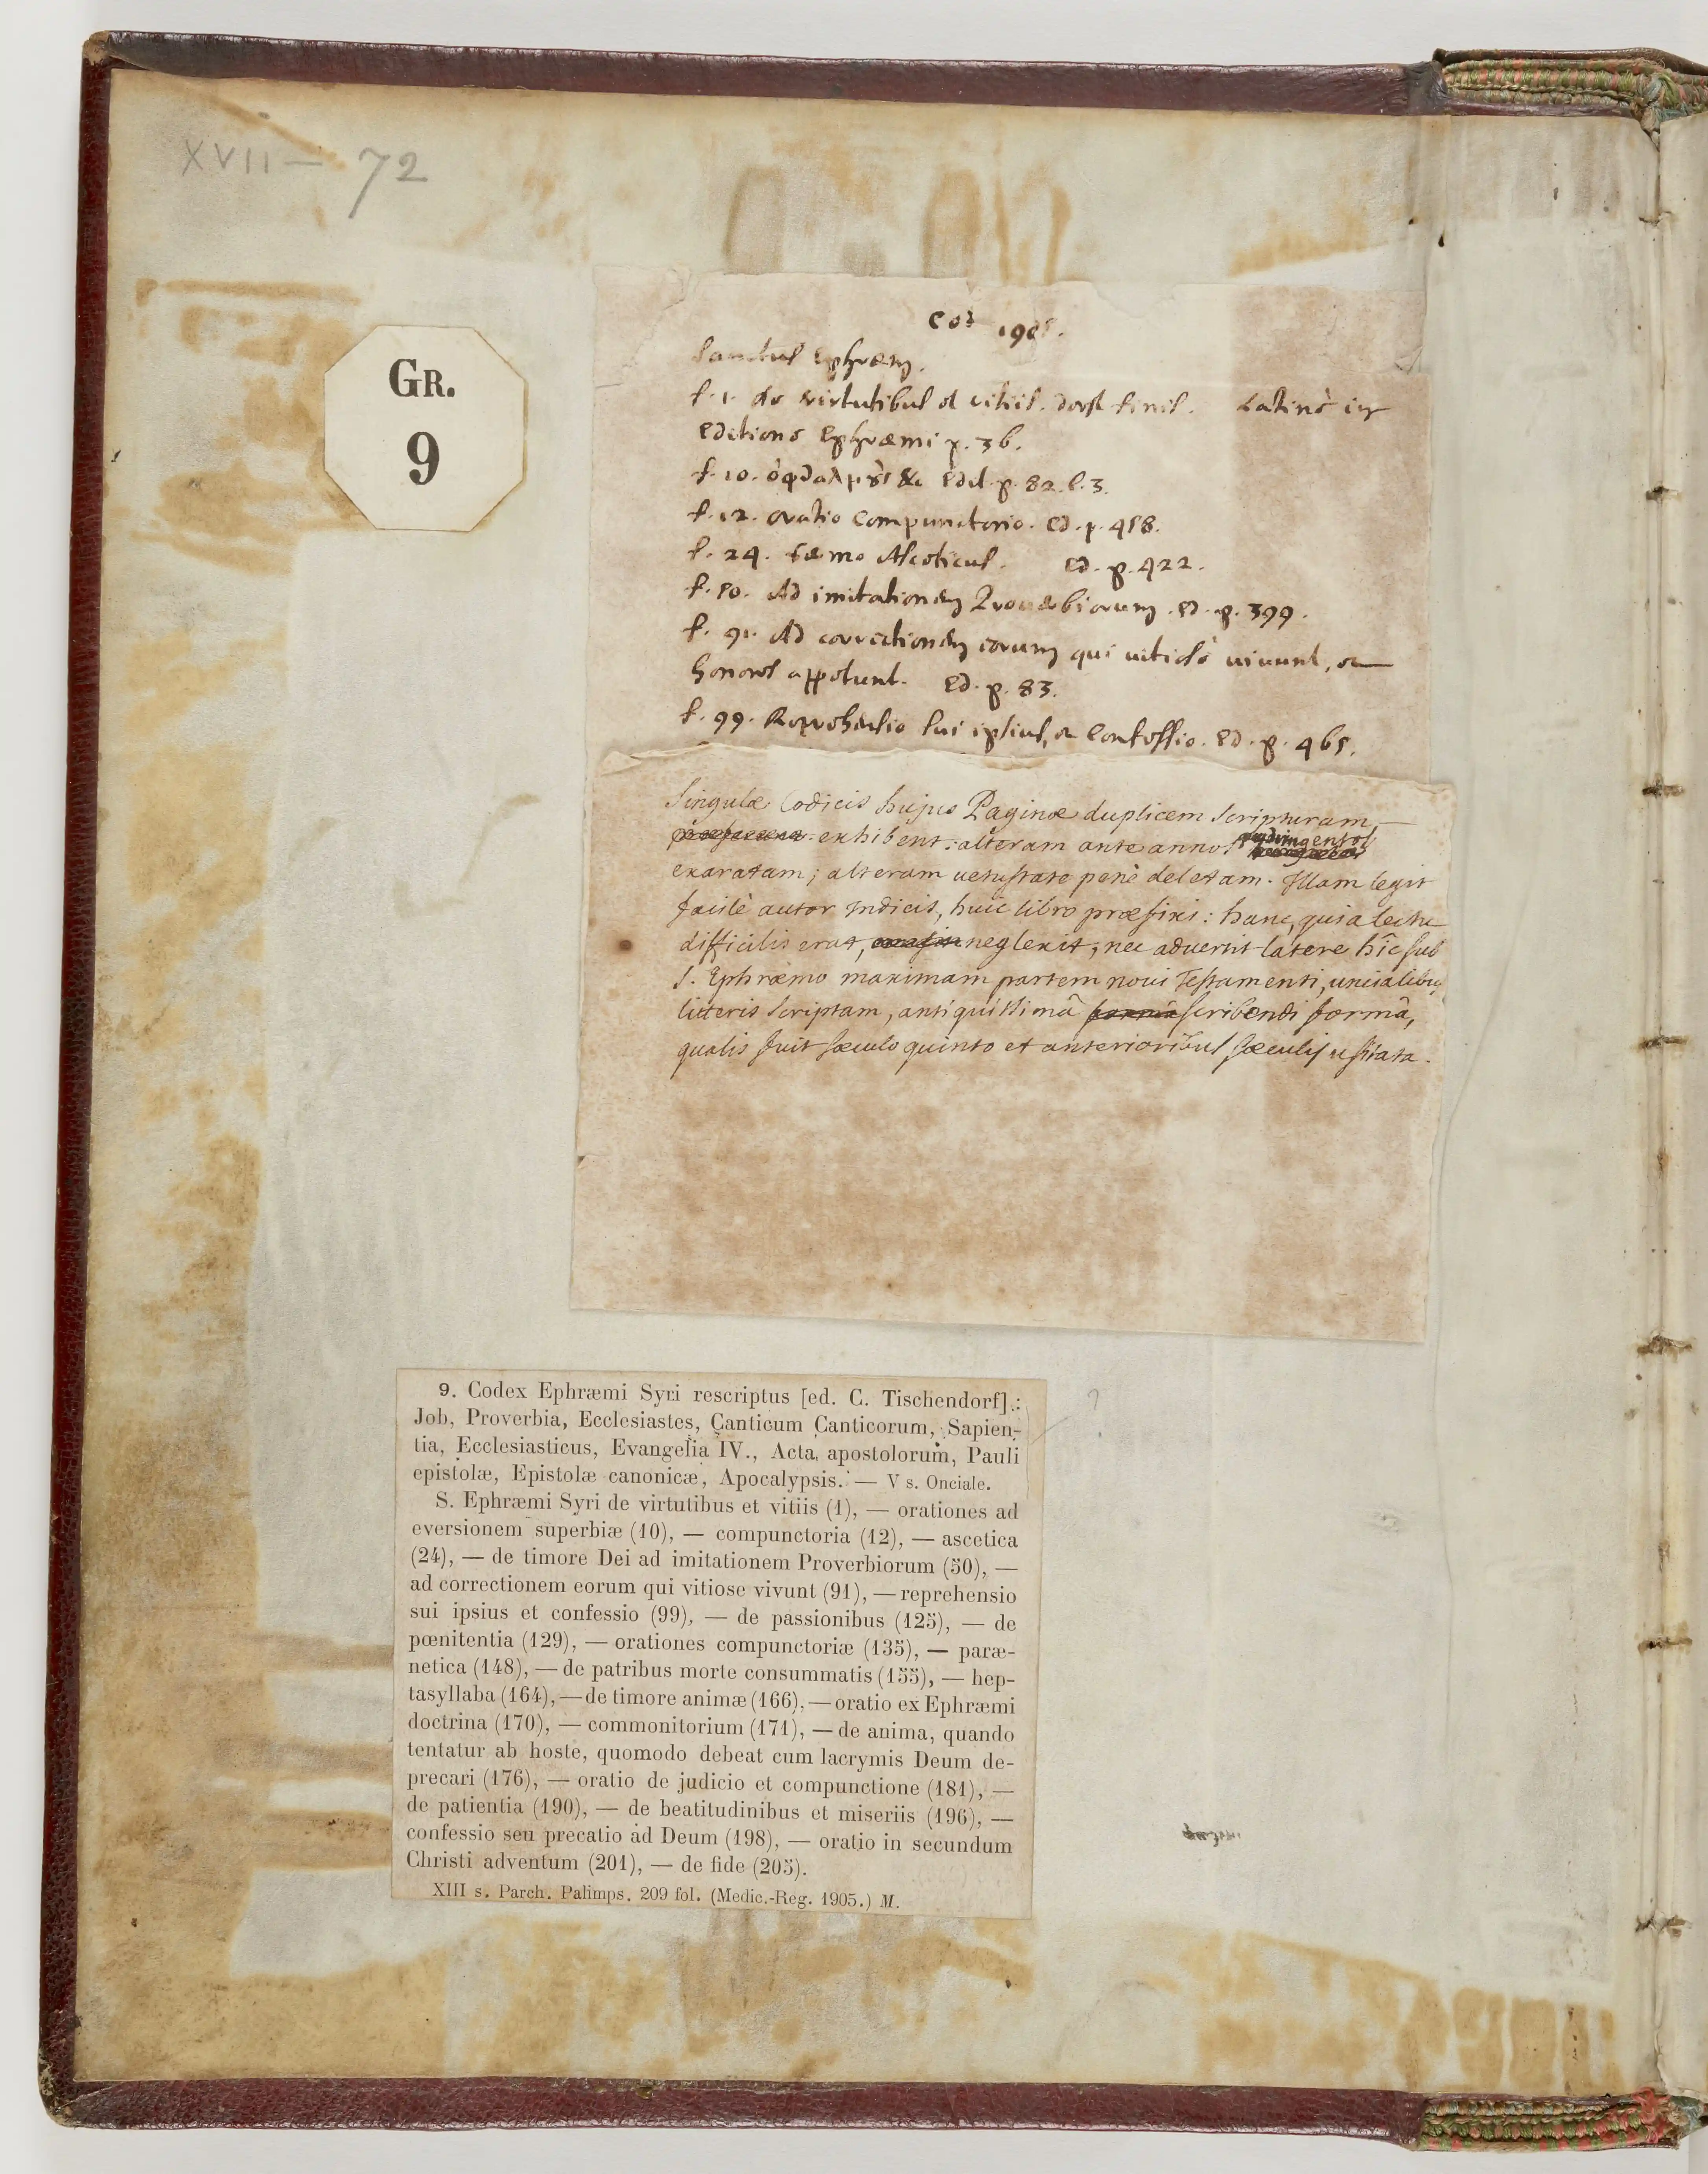 XVII — 72
GR.
9
Cod 1905.
Sanctus Ephræm.
f. 1. de virtutibus et vitiis. deest finis. Latine in
editione Ephræmi p. 36.
f. 10. ὀφθαλμȣ̀ς &c edit. p. 82. l. 3.
f. 12. oratio compunctorio. ed. p. 458.
f. 24. sermo Asceticus. ed. p. 422.
f. 50. Ad imitationem Proverbiorum. ed. p. 399.
f. 91. Ad correctionem eorum qui vitiosè vivunt, et
honores appetunt. Ed. p. 83.
f. 99. Reprehensio sui ipsius, et Confessio. Ed. p. 465.
Singulæ Codicis hujus Paginæ duplicem scripturam
exhibent: alteram ante annos quadringentos
exaratam; alteram vetustate penè deletam. Illam legit
facilè autor Indicis, huic libro præfixi: hanc, quia lectu
difficilis erat, neglexit; nec advertit latere hîc sub
S. Ephræmo maximam partem novi Testamenti, uncialibus
litteris scriptam, antiquissimâ scribendi formâ,
qualis fuit sæculo quinto et anterioribus sæculis usitata.
9. Codex Ephræmi Syri rescriptus [ed. C. Tischendorf]:
Job, Proverbia, Ecclesiastes, Canticum Canticorum, Sapien-
tia, Ecclesiasticus, Evangelia IV., Acta apostolorum, Pauli
epistolæ, Epistolæ canonicæ, Apocalypsis. — V s. Onciale.
?
S. Ephræmi Syri de virtutibus et vitiis (1), — orationes ad
eversionem superbiæ (10), — compunctoria (12), — ascetica
(24), — de timore Dei ad imitationem Proverbiorum (50), —
ad correctionem eorum qui vitiose vivunt (91), — reprehensio
sui ipsius et confessio (99), — de passionibus (125), — de
pœnitentia (129), — orationes compunctoriæ (135), — paræ-
netica (148), — de patribus morte consummatis (155), — hep-
tasyllaba (164), — de timore animæ (166), — oratio ex Ephræmi
doctrina (170), — commonitorium (171), — de anima, quando
tentatur ab hoste, quomodo debeat cum lacrymis Deum de-
precari (176), — oratio de judicio et compunctione (181), —
de patientia (190), — de beatitudinibus et miseriis (196), —
confessio seu precatio ad Deum (198), — oratio in secundum
Christi adventum (201), — de fide (205).
XIII s. Parch. Palimps. 209 fol. (Medic.-Reg. 1905.) M.